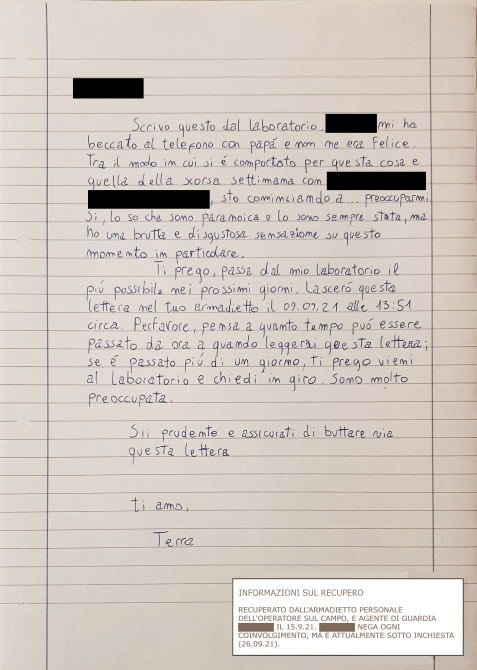 Scrivo questo dal laboratorio. mi ha
beccato al telefono con papá e non me era Felice.
Tra il modo in cui si é comportato per questa cosa e
quella della scorsa settimana con
, sto cominciando a... preoccuparmi.
Si, lo so che sono paranoica e lo sono sempre stata, ma
ho una brutta e disgustosa sensazione su questo
momento in particolare.
Ti prego, passa dal mio laboratorio il
piú possibile nei prossimi giorni. Lasceró questa
lettera nel tuo armadietto il 09.09.21 alle 13:51
circa. Perfavore, pensa a quanto tempo puó essere
passato da ora a quando leggerai questa lettera;
se é passato piú di un giorno, ti prego vieni
al laboratorio e chiedi in giro. Sono molto
preoccupata.
Sii prudente e assicurati di buttare via
questa lettera
ti amo,
Terra
INFORMAZIONI SUL RECUPERO
RECUPERATO DALL'ARMADIETTO PERSONALE
DELL'OPERATORE SUL CAMPO, E AGENTE DI GUARDIA
IL 15.9.21. NEGA OGNI
COINVOLGIMENTO, MA È ATTUALMENTE SOTTO INCHIESTA
(26.09.21).